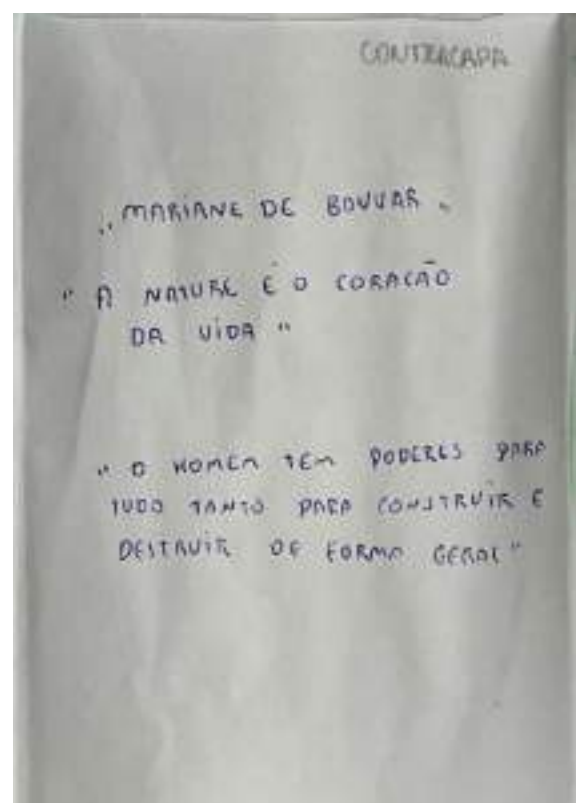 CONTRACAPA
"MARIANE DE BOUVAR"
"A NATURE É O CORACÃO
DA VIDA"
"O HOMEM TEM PODERES PARA
TUDO TANTO PARA CONSTRUIR E
DESTRUIR DE FORMA GERAL"